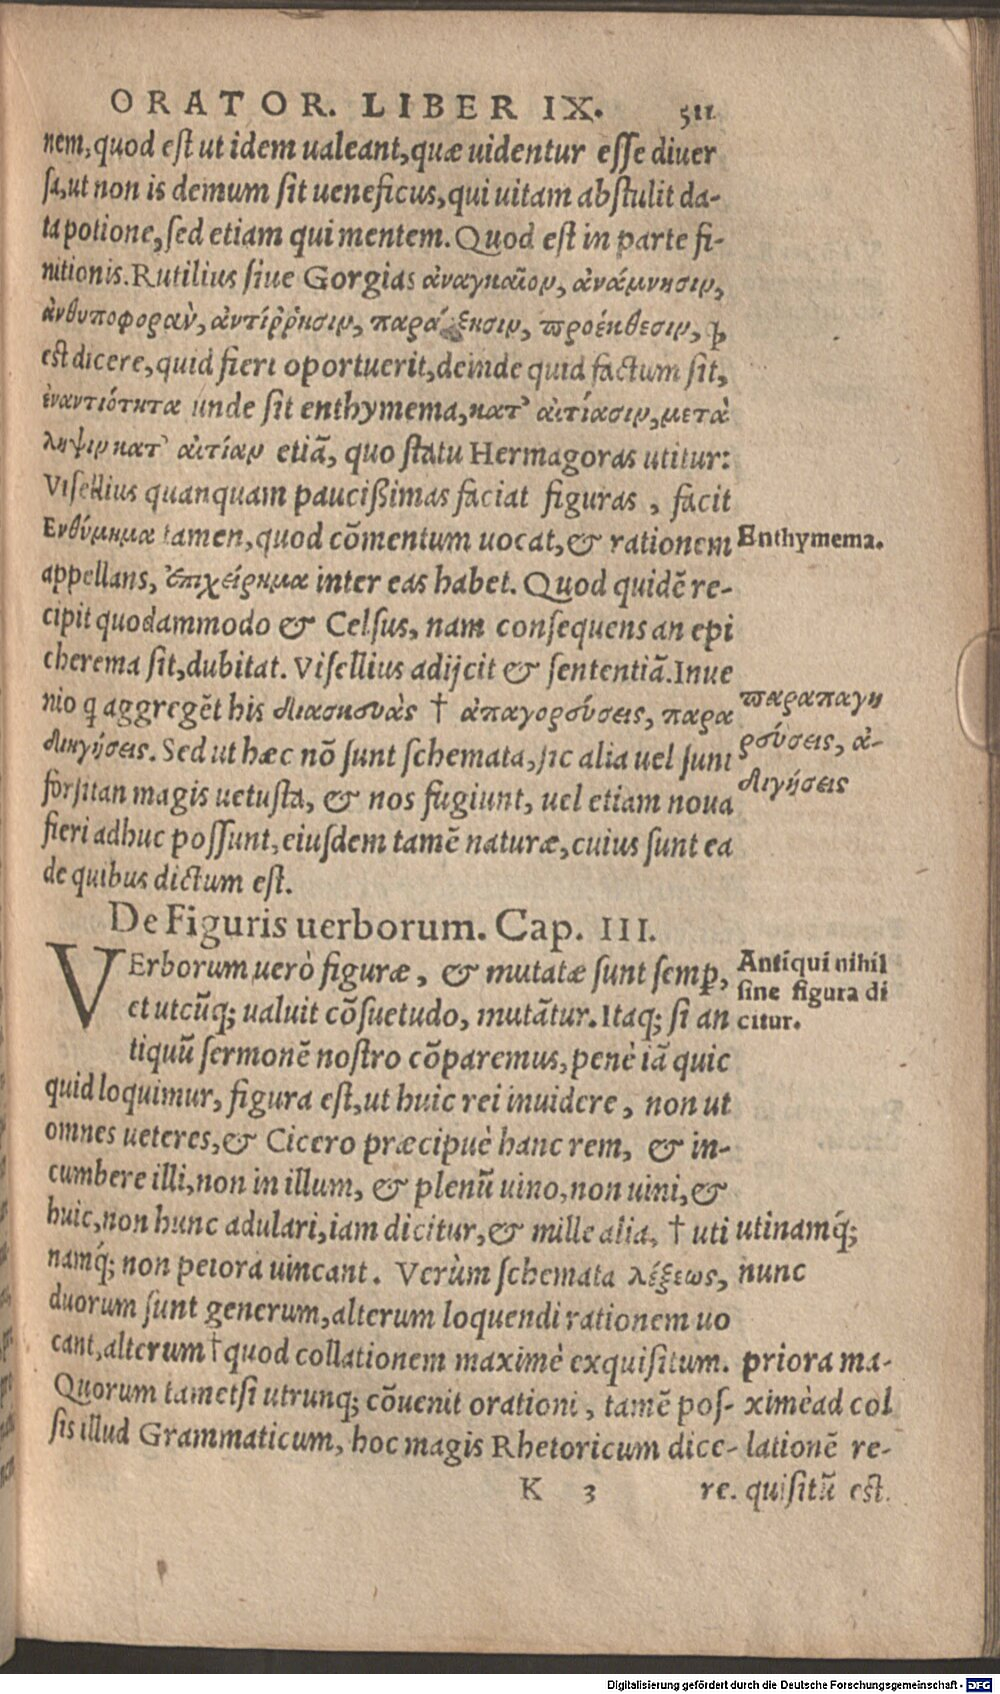 ORATOR. LIBER IX. 511
nem, quod est ut idem ualeant, quæ uidentur esse diuer
sa, ut non is demum sit ueneficus, qui uitam abstulit da-
ta potione, sed etiam qui mentem. Quod est in parte fi-
nitionis. Rutilius siue Gorgias ἀναγκαῖον, ἀνάμνησιν,
ἀνθυποφορὰν, ἀντίῤῥησιν, προέκθεσιν, ꝙ
est dicere, quid fieri oportuerit, deinde quid factum sit,
ἐναντιότητα unde sit enthymema, κατ' αἰτίασιν, μετὰ
ληψιν κατ' αἰτίαν etiã, quo statu Hermagoras utitur:
Visellius quanquam paucißimas faciat figuras, facit
Ενθύμημα tamen, quod cõmentum uocat, & rationem
appellans, ἐπιχείρημα inter eas habet. Quod quidẽ re-
cipit quodammodo & Celsus, nam consequens an epi
cherema sit, dubitat. Visellius adijcit & sententiã. Inue
nio q aggregẽt his διασκευὰς † ἀπαγορεύσεις, παρα
διηγήσεις. Sed ut hæc nõ sunt schemata, sic alia uel sunt
forsitan magis uetusta, & nos fugiunt, uel etiam noua
fieri adhuc possunt, eiusdem tamẽ naturæ, cuius sunt ea
de quibus dictum est.
Enthymema.
παραπαγη
ρεύσεις, ἀ-
διγήσεις
De Figuris uerborum. Cap. III.
VErborum uerò figuræ, & mutatæ sunt semꝑ,
et utcũq; ualuit cõsuetudo, mutãtur. Itaq; si an
tiquũ sermonẽ nostro cõparemus, penè iã quic
quid loquimur, figura est, ut huic rei inuidere, non ut
omnes ueteres, & Cicero præcipuè hanc rem, & in-
cumbere illi, non in illum, & plenũ uino, non uini, &
huic, non hunc adulari, iam dicitur, & mille alia, † uti
namq́; non peiora uincant. Verùm schemata λέξεως,
duorum sunt generum, alterum loquendi rationem uo
cant, alterum † quod collationem maximè exquisitum.
Quorum tametsi utrunq; cõuenit orationi, tamẽ pos-
sis illud Grammaticum, hoc magis Rhetoricum dice-
K 3 re.
Antiqui nihil
sine figura di
citur.
utinamq́;
nunc
priora ma-
ximè ad col
lationẽ re-
quisitũ est.
Digitalisierung gefördert durch die Deutsche Forschungsgemeinschaft - DFG